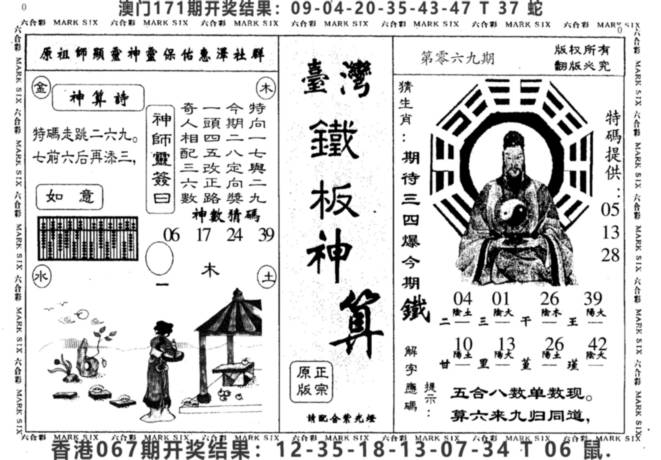 澳门171期开奖结果：09-04-20-35-43-47 T 37 蛇
原祖師顯靈神靈保佑惠澤社群
金
木
神算詩
特碼走跳二六九。
七前六后再添三，
如意
神師靈簽曰
特向一七與二九
今期二八定向獎
一頭四五改正路
奇人相配三六數
神數猜碼
06 17 24 39
木
水
土
臺灣
鐵板神算
正宗原版
請配合紫光燈
第零六九期
版权所有
翻版必究
猜生肖：期待三四爆今期鐵
特碼提供：
05
13
28
04 01 26 39
陰土 陽火 陰木 陽火
二 三 干 王
10 13 26 42
陽土 陽火 陰土 陰火
甘 里 堇 瑾
解字應碼
提示：
五合八数单数现。
算六来九归同道，
香港067期开奖结果：12-35-18-13-07-34 T 06 鼠.
六合彩 MARK SIX